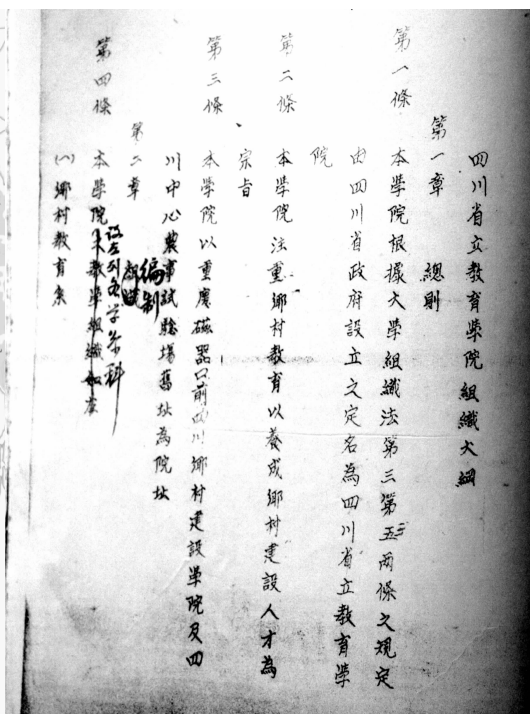 四川省立教育學院組織大綱
第一章　總則
第一條　本學院根據大學組織法第三第五兩條之規定
由四川省政府設立之定名為四川省立教育學
院
第二條　本學院注重鄉村教育以養成鄉村建設人才為
宗旨
第三條　本學院以重慶磁器口前四川鄉村建設學院及四
川中心農事試驗場舊址為院址
第二章　編制
第四條　本學院設左列各學系科
(一)鄉村教育系